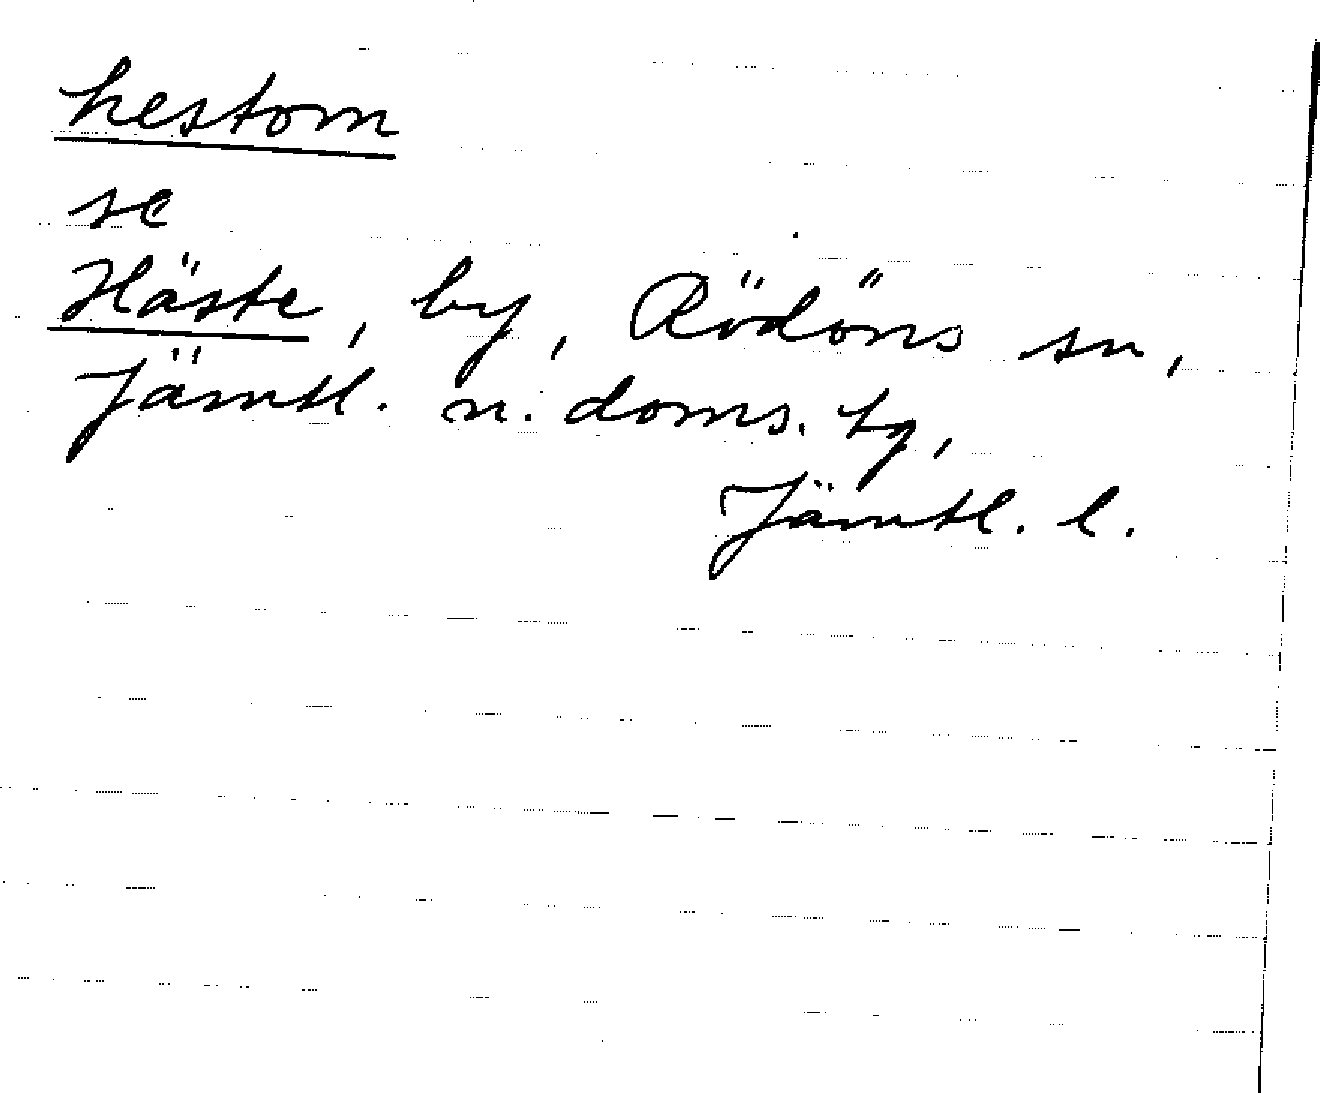 hestom
se
Häste, by, Rödöns sn,
Jämtl. n. doms. tg,
Jämtl. l.